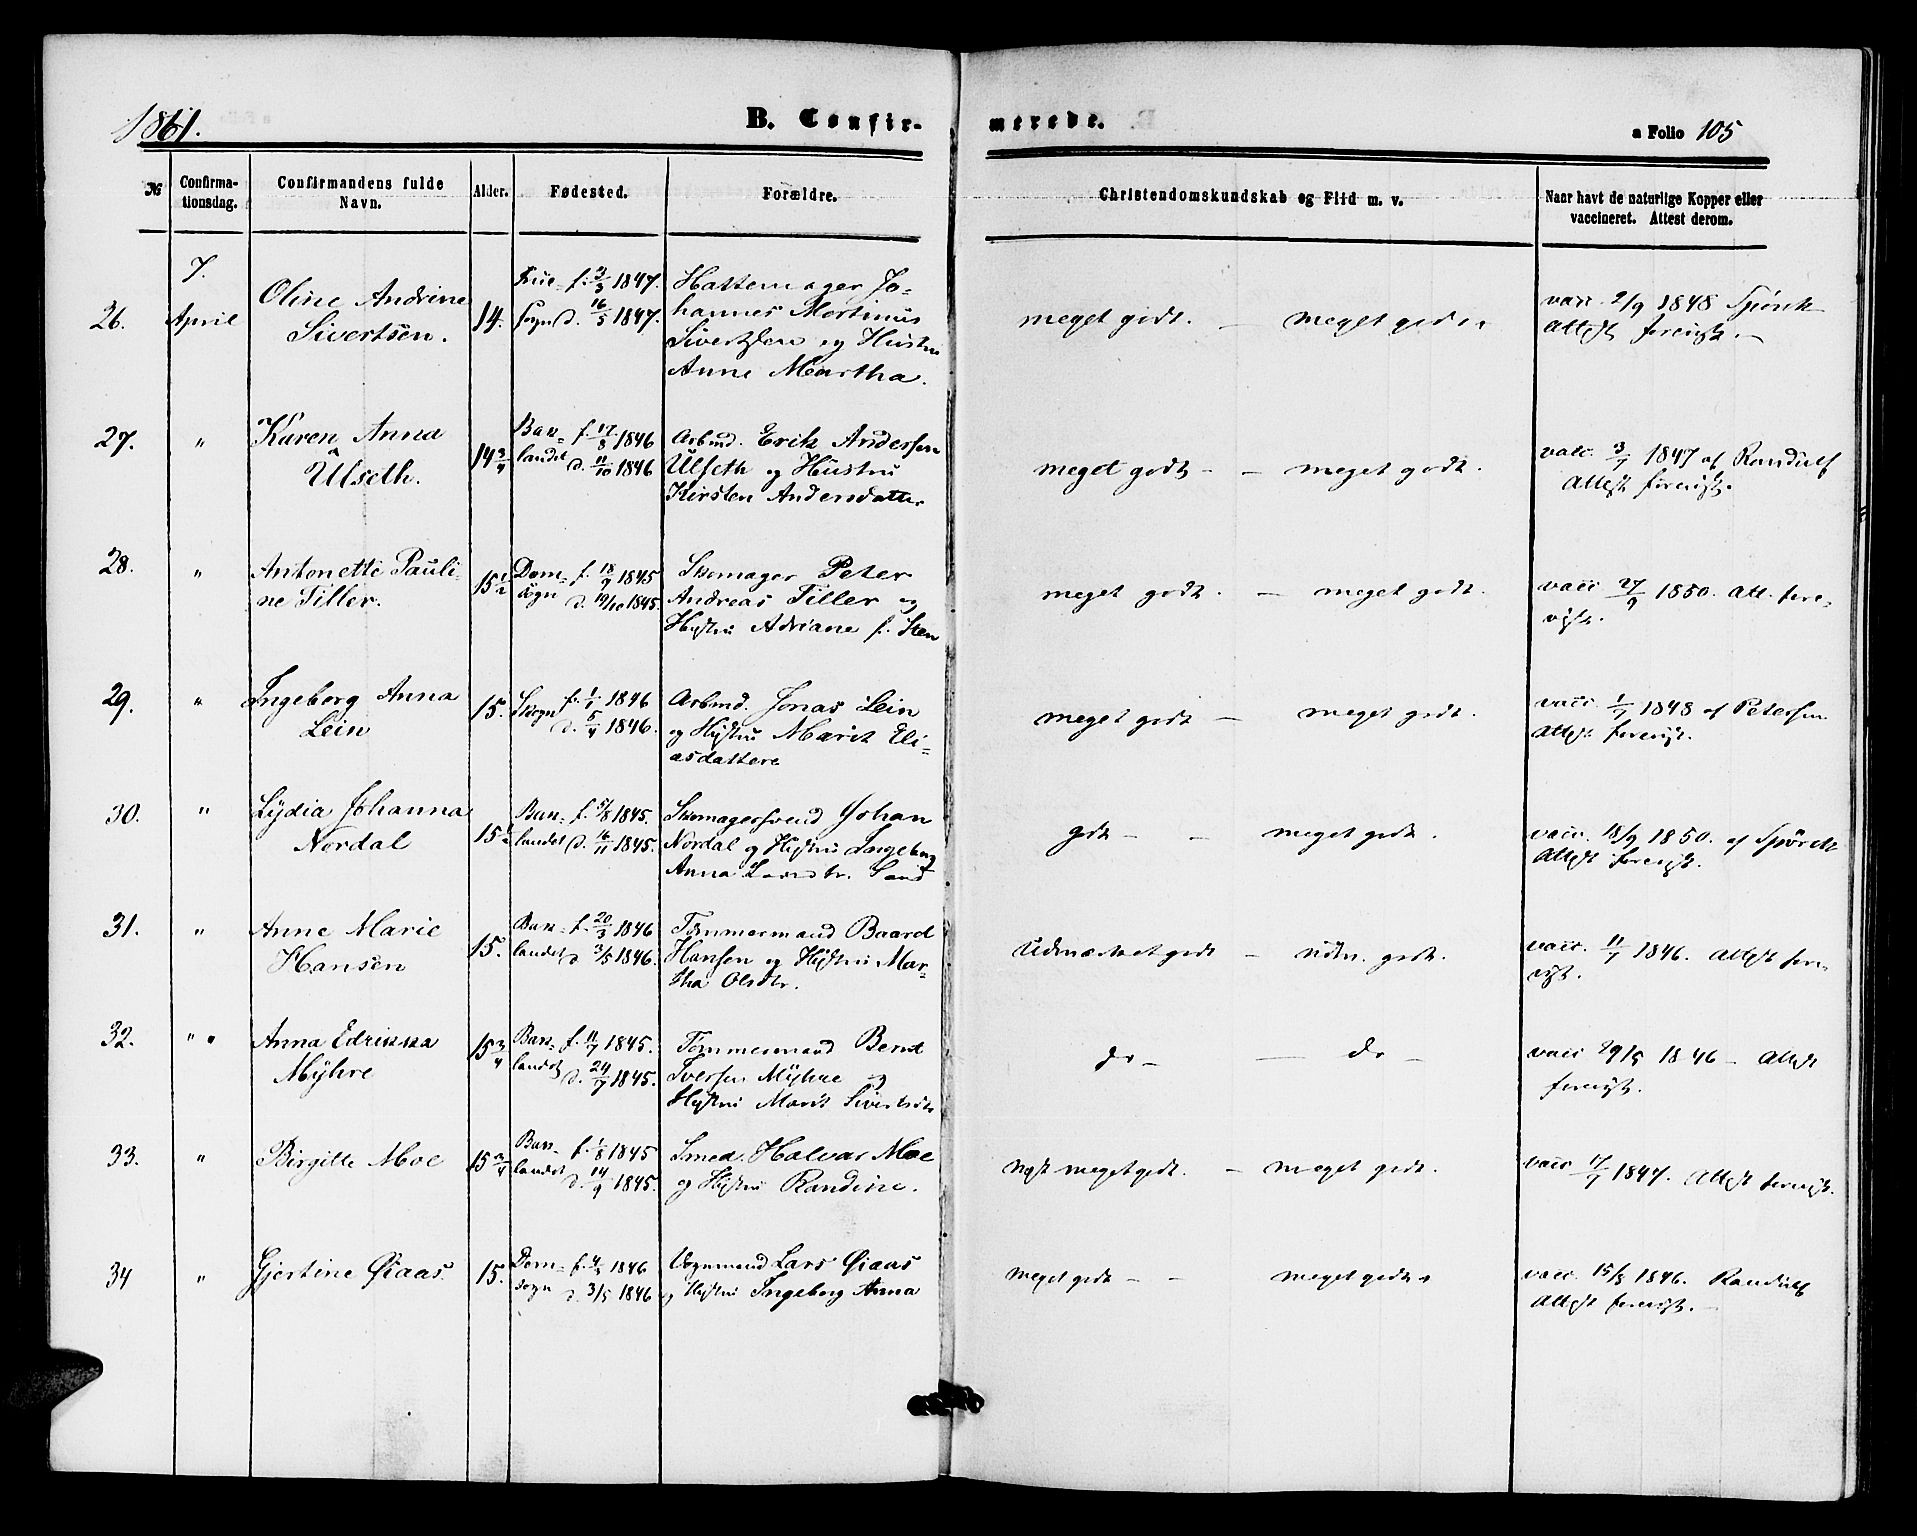 1861.
B. Confir-
merede.
a Folio 105
№
Confirma-
tionsdag.
Confirmandens fulde
Navn.
Alder.
Fødested.
Forældre.
Christendomskundskab og Flid m. v.
Naar havt de naturlige Kopper eller
vaccineret. Attest derom.
26.
7.
April
Oline Andrine
Sivertsen.
14.
Frue- f. 2/3 1847.
sogn d. 16/5 1847.
Hattemager Jo-
hannes Martinus
Sivertsen og Hustru
Anne Martha.
meget godt. — meget godt.
vacc. 2/9 1848 Spörck
Attest forevist. —
27.
"
Karen Anna
Ulseth.
14 3/4
Bak- f. 17/8 1846
landet d. 11/10 1846
Arbmd. Erik Andersen
Ulseth og Hustru
Kirsten Andersdatter
meget godt - - meget godt.
vacc. 3/7 1847 af Randulf
Attest forevist.
28.
"
Antonette Pauli-
ne Tiller.
15 1/2
Dom- f. 18/9 1845
sogn d. 19/10 1845.
Skomager Peter
Andreas Tiller og
Hustru Adriane f. Sten
meget godt. — meget godt.
vacc 27/9 1850. Att. fore-
vist.
29.
"
Ingeborg Anna
Lein
15.
Skogn f. 1/1 1846
d. 5/4 1846.
Arbmd. Jonas Lein
og Hustru Marit Eli-
asdatter
meget godt — meget godt.
vacc. 1/7 1848 af Petersen
Attest forevist.
30.
"
Lydia Johanna
Nordal
15 1/2
Bak- f. 5/8 1845.
landet d. 16/11 1845.
Skomagersvend Johan
Nordal og Hustru Ingeborg
Anna Larsdtr. Sand
godt - - meget godt.
vacc. 18/9 1850. af Spörck
Attest forevist.
31.
"
Anne Marie
Hansen
15.
Bak- f. 20/3 1846
landet d 3/5 1846.
Tømmermand Baard
Hansen og Hustru Mar-
tha Olsdtr.
Udmærket godt — udm. godt.
vacc. 11/7 1846. Attest fore-
vist.
32.
" "
Anna Edrikka
Myhre
15 3/4
Bak- f. 11/7 1845.
landet d. 24/9 1845.
Tømmermand Bernt
Iversen Myhre og
Hustru Marit Sivertsdtr
do - — do -
vacc 29/5 1846 - Attest
forevist.
33.
"
Birgitte Moe
15 3/4
Bak- f. 1/8 1845
landet d. 14/9 1845.
Smed Halvar Moe
og Hustru Randine.
næst meget godt. - meget godt.
vacc 17/7 1847. Attest forevist.
34
"
Gjertine Øiaas
15.
Dom- f. 4/3 1846
sogn d. 3/5 1846
Vognmand Lars Øiaas
og Hustru Ingeborg Anna
meget godt - - meget godt
vacc. 15/8 1846. Randulf
Attest forevist. —